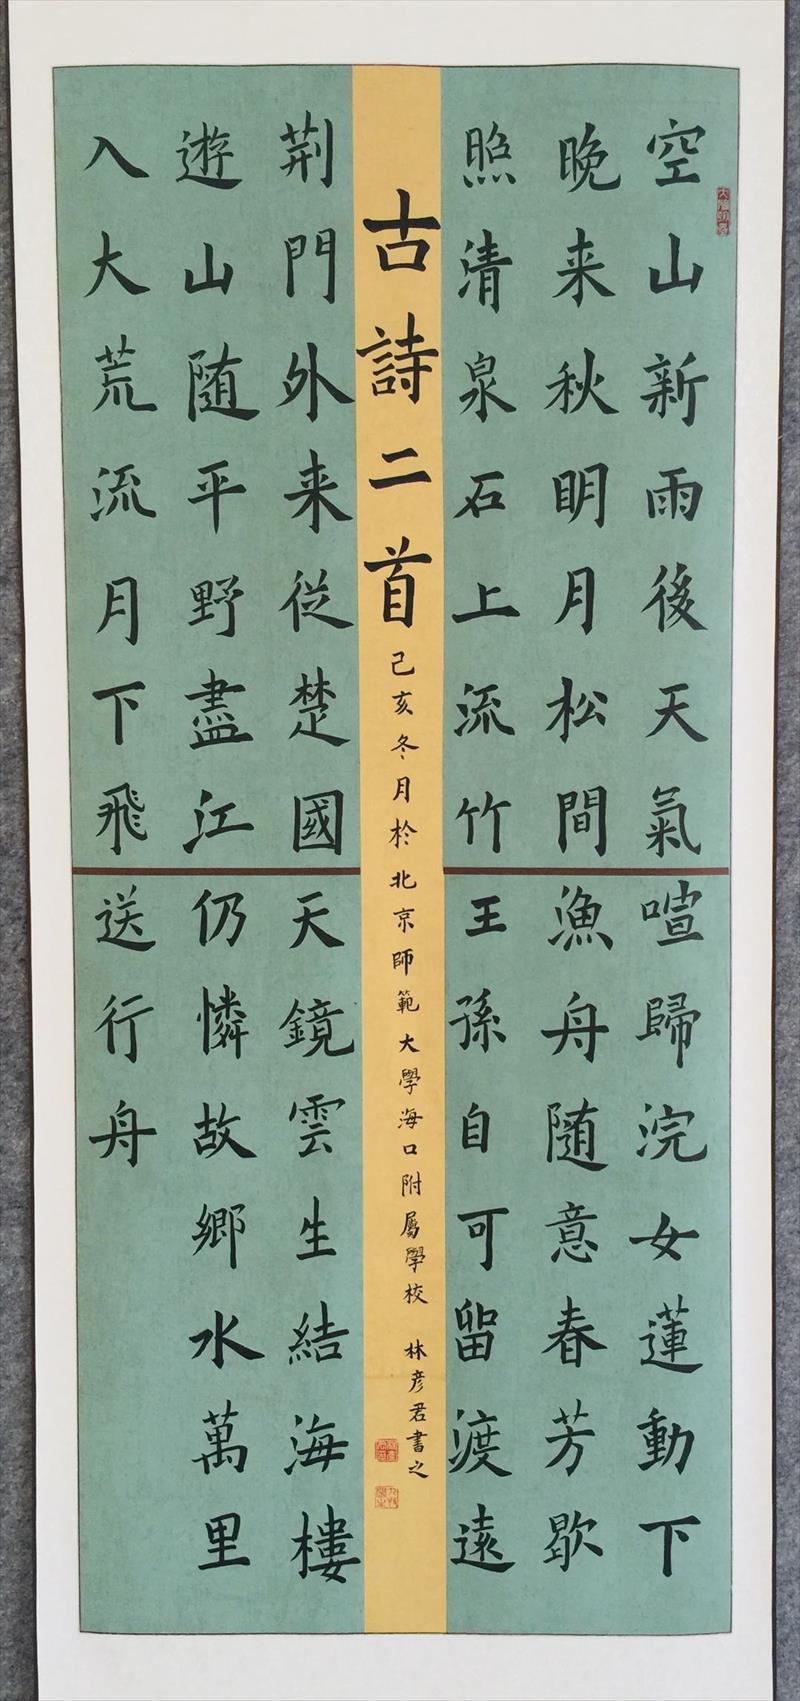 空山新雨後天氣
晚来秋明月松間
照清泉石上流竹
喧歸浣女蓮動下
漁舟随意春芳歇
王孫自可留渡遠
古詩二首
己亥冬月於北京師範大學海口附屬學校 林彦君書之
荆門外来從楚國
遊山随平野盡江
入大荒流月下飛
天鏡雲生結海樓
仍憐故鄉水萬里
送行舟